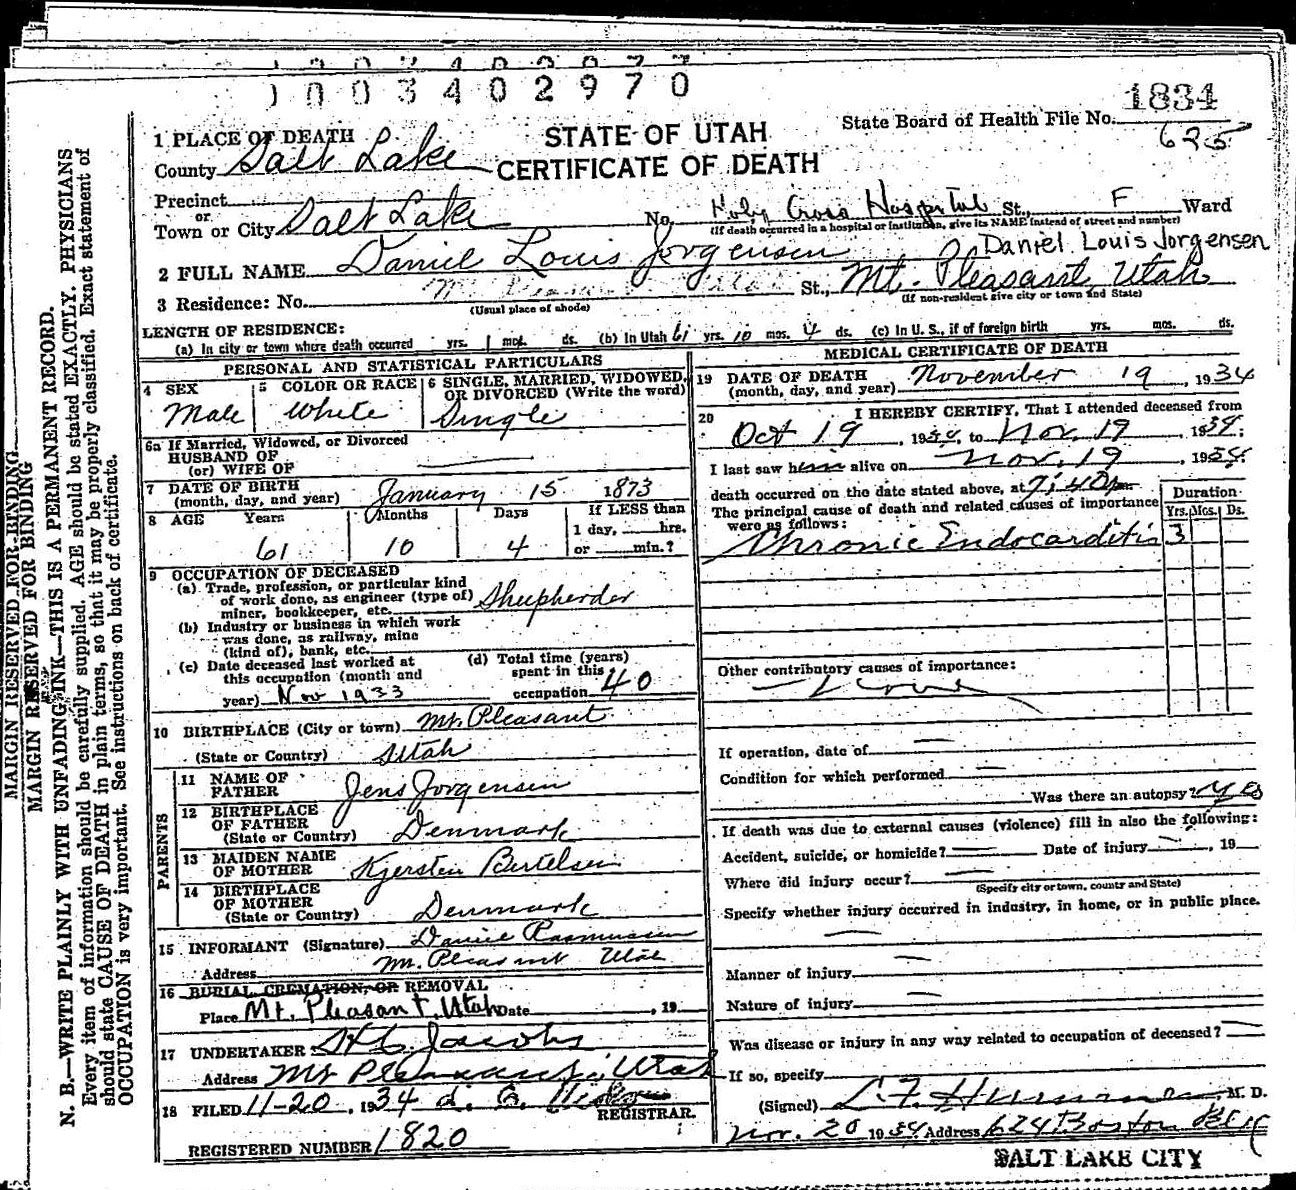 1003402970
1834
State Board of Health File No.
625
STATE OF UTAH
CERTIFICATE OF DEATH
1 PLACE OF DEATH
County Salt Lake
Precinct
or
Town or City Salt Lake No. Holy Cross Hospital St., F Ward
(If death occurred in a hospital or institution, give its NAME instead of street and number)
Daniel Louis Jorgensen
2 FULL NAME Daniel Louis Jorgensen
3 Residence: No. St., Mt. Pleasant, Utah
(Usual place of abode) (If non-resident give city or town and State)
LENGTH OF RESIDENCE:
(a) In city or town where death occurred yrs. 1 mos. ds. (b) In Utah 61 yrs. 10 mos. 4 ds. (c) In U. S., if of foreign birth yrs. mos. ds.
PERSONAL AND STATISTICAL PARTICULARS
4 SEX Male
5 COLOR OR RACE White
6 SINGLE, MARRIED, WIDOWED, OR DIVORCED (Write the word) Single
6a If Married, Widowed, or Divorced
HUSBAND OF
(or) WIFE OF
7 DATE OF BIRTH
(month, day, and year) January 15 1873
8 AGE Years Months Days If LESS than
1 day, hrs.
61 10 4 or min.?
9 OCCUPATION OF DECEASED
(a) Trade, profession, or particular kind
of work done, as engineer (type of) Sheepherder
miner, bookkeeper, etc.
(b) Industry or business in which work
was done, as railway, mine
(kind of), bank, etc.
(c) Date deceased last worked at
this occupation (month and
year) Nov 1933
(d) Total time (years)
spent in this
occupation 40
10 BIRTHPLACE (City or town) Mt. Pleasant
(State or Country) Utah
PARENTS
11 NAME OF
FATHER Jens Jorgensen
12 BIRTHPLACE
OF FATHER
(State or Country) Denmark
13 MAIDEN NAME
OF MOTHER Kjersten Bertelsen
14 BIRTHPLACE
OF MOTHER
(State or Country) Denmark
15 INFORMANT (Signature) Daniel Rasmussen
Address Mt. Pleasant Utah
16 BURIAL, CREMATION, OR REMOVAL
Place Mt. Pleasant, Utah Date , 19
17 UNDERTAKER Jacobs
Address Mt Pleasant, Utah
18 FILED 11-20, 1934
REGISTRAR.
REGISTERED NUMBER 1820
MEDICAL CERTIFICATE OF DEATH
19 DATE OF DEATH
(month, day, and year) November 19, 1934
20 I HEREBY CERTIFY, That I attended deceased from
Oct 19, 1934, to Nov. 19, 1934.
I last saw him alive on Nov. 19, 1934.
death occurred on the date stated above, at 7:40 pm.
The principal cause of death and related causes of importance
were as follows:
Duration
Yrs. Mos. Ds.
Chronic Endocarditis 3
Other contributory causes of importance:
If operation, date of
Condition for which performed
Was there an autopsy? Yes
If death was due to external causes (violence) fill in also the following:
Accident, suicide, or homicide? Date of injury , 19
Where did injury occur?
(Specify city or town, county and State)
Specify whether injury occurred in industry, in home, or in public place.
Manner of injury
Nature of injury
Was disease or injury in any way related to occupation of deceased?
If so, specify
(Signed) M. D.
Nov. 20 1934 Address 624 Boston Bldg
SALT LAKE CITY
MARGIN RESERVED FOR BINDING
MARGIN RESERVED FOR BINDING
N. B.—WRITE PLAINLY WITH UNFADING INK—THIS IS A PERMANENT RECORD.
Every item of information should be carefully supplied. AGE should be stated EXACTLY. PHYSICIANS
should state CAUSE OF DEATH in plain terms, so that it may be properly classified. Exact statement of
OCCUPATION is very important. See instructions on back of certificate.